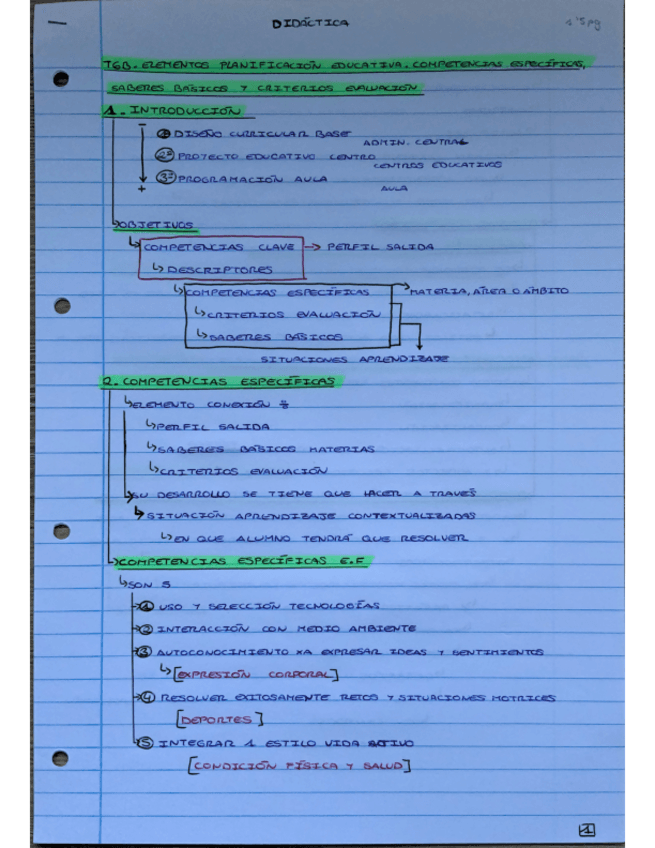 DIDÁCTICA
1'5pg
T6B. ELEMENTOS PLANIFICACIÓN EDUCATIVA. COMPETENCIAS ESPECÍFICAS,
SABERES BÁSICOS Y CRITERIOS EVALUACIÓN
1. INTRODUCCIÓN
- 1º DISEÑO CURRICULAR BASE
ADMIN. CENTRAL
2º PROYECTO EDUCATIVO CENTRO
CENTROS EDUCATIVOS
+ 3º PROGRAMACIÓN AULA
AULA
OBJETIVOS
COMPETENCIAS CLAVE → PERFIL SALIDA
↳ DESCRIPTORES
↳ COMPETENCIAS ESPECÍFICAS → MATERIA, ÁREA O ÁMBITO
↳ CRITERIOS EVALUACIÓN
↳ SABERES BÁSICOS
SITUACIONES APRENDIZAJE
2. COMPETENCIAS ESPECÍFICAS
↳ ELEMENTO CONEXIÓN
↳ PERFIL SALIDA
↳ SABERES BÁSICOS MATERIAS
↳ CRITERIOS EVALUACIÓN
↳ SU DESARROLLO SE TIENE QUE HACER A TRAVÉS
↳ SITUACIÓN APRENDIZAJE CONTEXTUALIZADAS
↳ EN QUE ALUMNO TENDRÁ QUE RESOLVER
COMPETENCIAS ESPECÍFICAS E.F
↳ SON 5
1 USO Y SELECCIÓN TECNOLOGÍAS
2 INTERACCIÓN CON MEDIO AMBIENTE
3 AUTOCONOCIMIENTO XA EXPRESAR IDEAS Y SENTIMIENTOS
↳ [EXPRESIÓN CORPORAL]
4 RESOLVER EXITOSAMENTE RETOS Y SITUACIONES MOTRICES
[DEPORTES]
5 INTEGRAR 1 ESTILO VIDA ACTIVO
[CONDICIÓN FÍSICA Y SALUD]
1